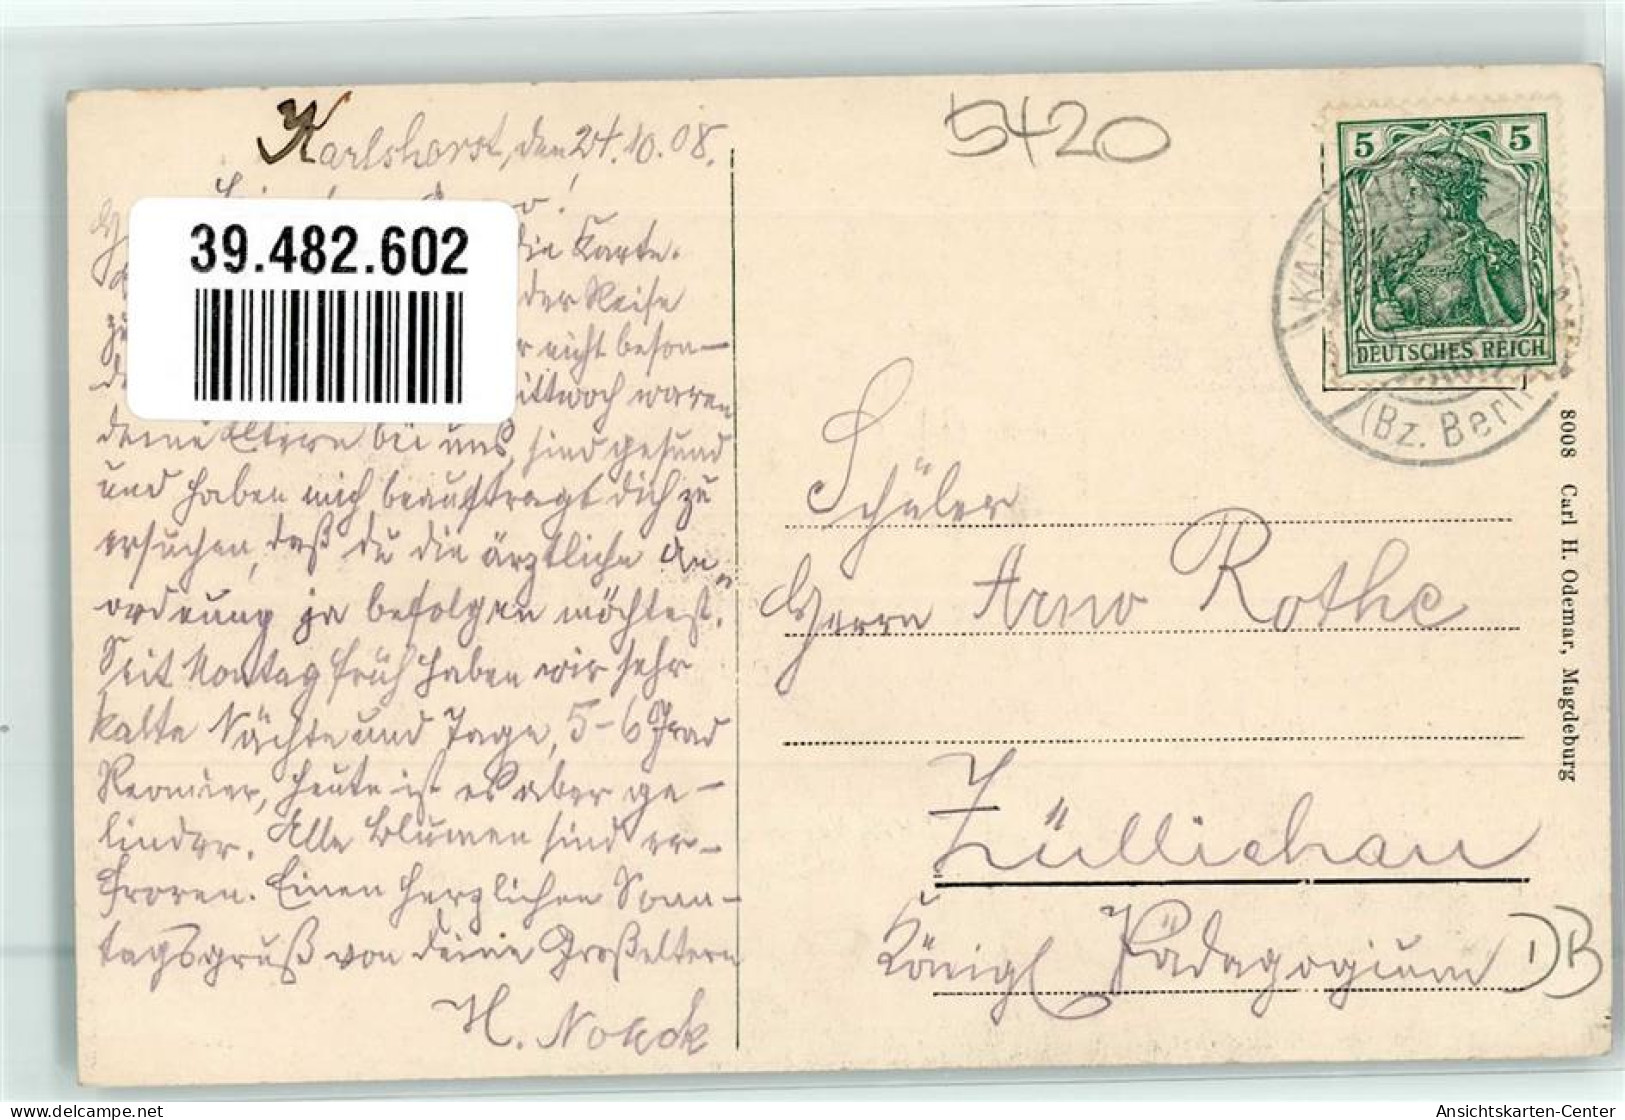 Karlshorst, den 24.10.08.
39.482.602
die Karte.
der Reise
nicht beson-
Mittwoch waren
deine Eltern bei uns, sind gesund
und haben mich beauftragt dich zu
ersuchen, daß du die ärztliche An-
ordnung ja befolgen möchtest.
Seit Montag früh haben wir sehr
kalte Nächte und Tage, 5-6 Grad
Reomier, heute ist es aber ge-
linder. Alle Blumen sind er-
froren. Einen herzlichen Sonn-
tagsgruß von deine Großeltern
H.
5420
5 5
DEUTSCHES REICH
(Bz. Berlin
Schüler
Herrn Arno Rothe
Züllichau
Königl Pädagogium
DB
8008 Carl H. Odemar, Magdeburg
www.delcampe.net
Ansichtskarten-Center